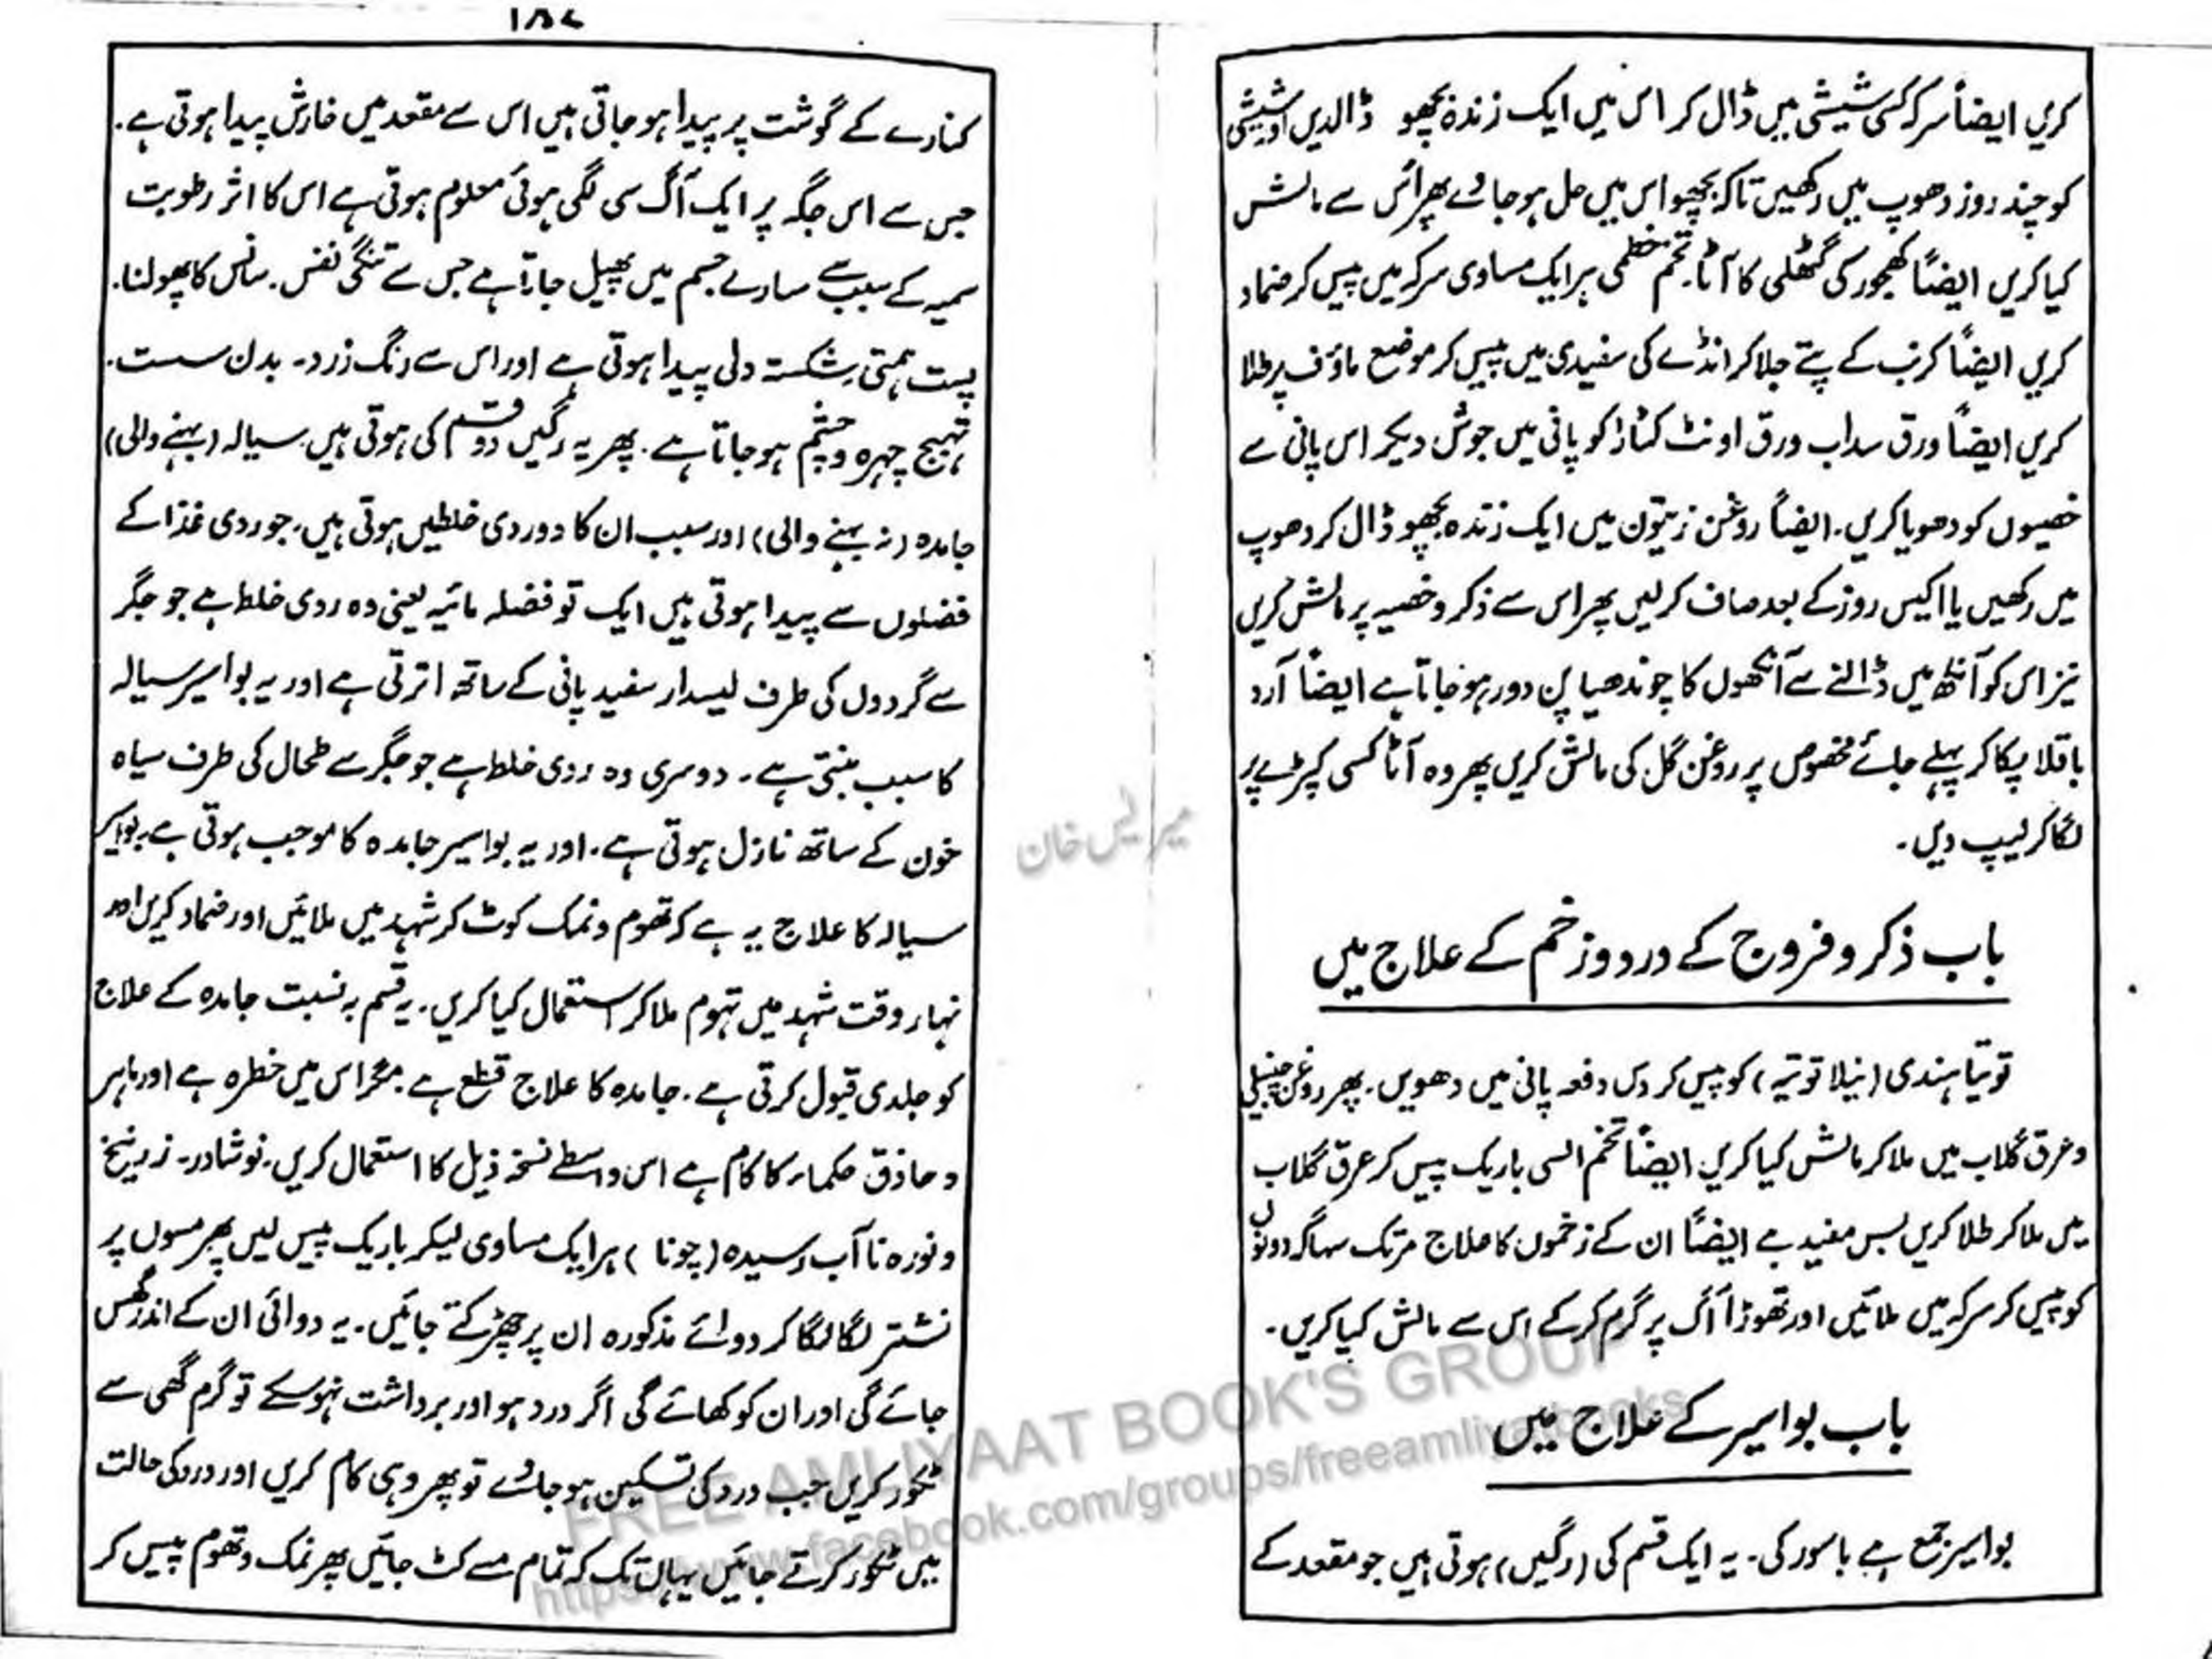 کریں ایضاً سرکہ کسی شیشی میں ڈال کر اس میں ایک زندہ بچھو ڈالدیں اور شیشی
کو چند روز دھوپ میں رکھیں تاکہ بچھو اس میں حل ہو جاوے پھر اُس سے مالش
کیا کریں ایضاً کھجور کی گٹھلی کا آٹا۔ تخم خطمی ہر ایک مساوی سرکہ میں پیس کر ضماد
کریں ایضاً کرنب کے پتے جلا کر انڈے کی سفیدی میں پیس کر موضع ماؤف پر طلا
کریں ایضاً ورق سداب ورق اونٹ کٹارا کو پانی میں جوش دیکر اس پانی سے
خصیوں کو دھویا کریں۔ ایضاً روغن زیتون میں ایک زندہ بچھو ڈال کر دھوپ
میں رکھیں یا اکیس روز کے بعد صاف کر لیں پھر اس سے ذکر و خصیہ پر مالش کریں
نیز اس کو آنکھ میں ڈالنے سے آنکھوں کا چوندھیا پن دور ہو جاتا ہے ایضاً آرد
باقلا پکا کر پہلے جائے مخصوص پر روغن گل کی مالش کریں پھر وہ آٹا کسی کپڑے پر
لگا کر لیپ دیں۔
باب ذکر و فروج کے درد و زخم کے علاج میں
توتیا ہندی (نیلا توتیہ) کو پیس کر دس دفعہ پانی میں دھویں۔ پھر روغن چنبیلی
و عرق گلاب میں ملا کر مالش کیا کریں ایضاً تخم السی باریک پیس کر عرق گلاب
میں ملا کر طلا کریں بس مفید ہے ایضاً ان کے زخموں کا علاج مرتک سہاگہ دونوں
کو پیس کر سرکہ میں ملائیں اور تھوڑا آگ پر گرم کر کے اس سے مالش کیا کریں۔
باب بواسیر کے علاج میں
بواسیر جمع ہے باسور کی۔ یہ ایک قسم کی (رگیں) ہوتی ہیں جو مقعد کے
۱۵۷
کنارے کے گوشت پر پیدا ہو جاتی ہیں اس سے مقعد میں خارش پیدا ہوتی ہے۔
جس سے اس جگہ پر ایک آگ سی لگی ہوئی معلوم ہوتی ہے اس کا اثر رطوبت
سمیہ کے سبب سے سارے جسم میں پھیل جاتا ہے جس سے تنگی نفس۔ سانس کا پھولنا۔
پست ہمتی شکستہ دلی پیدا ہوتی ہے اور اس سے رنگ زرد۔ بدن سست۔
تہبج چہرہ و چشم ہو جاتا ہے۔ پھر یہ رگیں دو قسم کی ہوتی ہیں۔ سیالہ (بہنے والی)
جامدہ (نہ بہنے والی) اور سبب ان کا دو ردی خلطیں ہوتی ہیں۔ جو ردی غذا کے
فضلوں سے پیدا ہوتی ہیں ایک تو فضلہ مائیہ یعنی وہ ردی خلط ہے جو جگر
سے گردوں کی طرف لیسدار سفید پانی کے ساتھ اترتی ہے اور یہ بواسیر سیالہ
کا سبب بنتی ہے۔ دوسری وہ ردی خلط ہے جو جگر سے طحال کی طرف سیاہ
خون کے ساتھ نازل ہوتی ہے۔ اور یہ بواسیر جامدہ کا موجب ہوتی ہے۔ بواسیر
سیالہ کا علاج یہ ہے کہ تھوم و نمک کوٹ کر شہد میں ملائیں اور ضماد کریں اور
نہار وقت شہد میں تہوم ملا کر استعمال کیا کریں۔ یہ قسم بہ نسبت جامدہ کے علاج
کو جلدی قبول کرتی ہے۔ جامدہ کا علاج قطع ہے مگر اس میں خطرہ ہے اور ماہر
و حاذق حکماء کا کام ہے اس واسطے نسخہ ذیل کا استعمال کریں۔ نوشادر۔ زرنیخ
و نورہ نا آب رسیدہ (چونا) ہر ایک مساوی لیکر باریک پیس لیں پھر مسوں پر
نشتر لگا لگا کر دوائے مذکورہ ان پر چھڑکتے جائیں۔ یہ دوائی ان کے اندر گھس
جائے گی اور ان کو کھائے گی اگر درد ہو اور برداشت نہوسکے تو گرم گھی سے
ٹکور کریں جب درد کی تسکین ہو جاوے تو پھر وہی کام کریں اور درد کی حالت
میں ٹکور کرتے جائیں یہاں تک کہ تمام مسے کٹ جائیں پھر نمک و تھوم پیس کر
FREE AMLIYAAT BOOK'S GROUP
https://www.facebook.com/groups/freeamliyatbooks